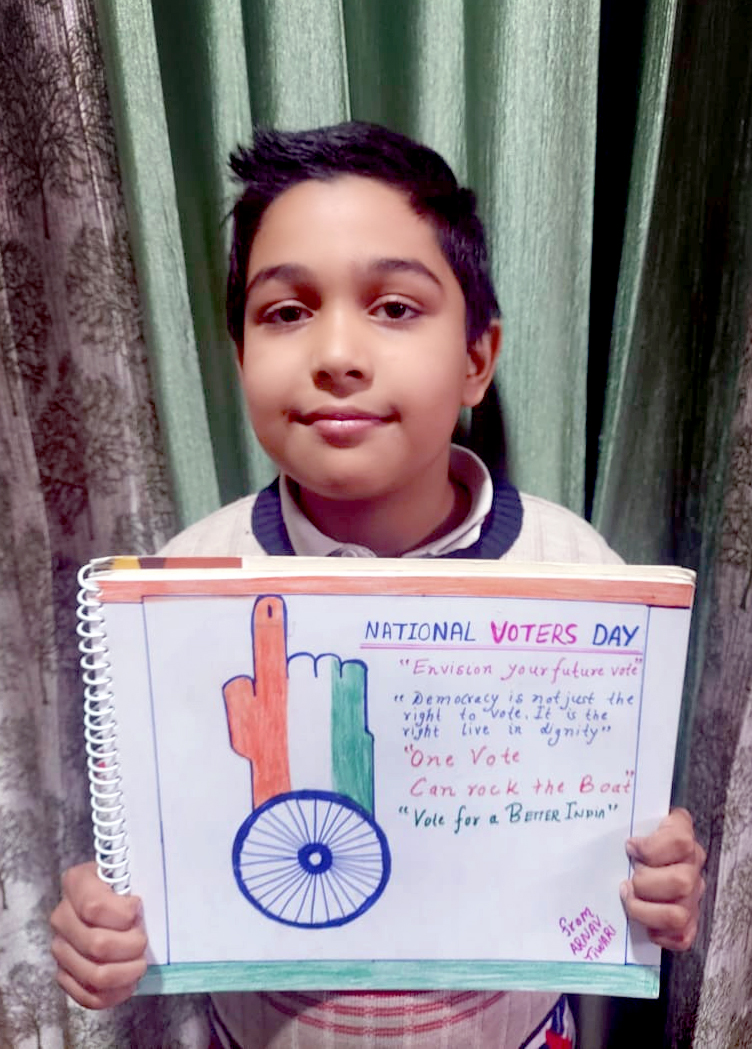 NATIONAL VOTERS DAY
"Envision your future vote"
"Democracy is not just the
right to vote. It is the
right live in dignity"
"One Vote
Can rock the Boat"
"Vote for a BETTER INDIA"
from
ARNAV
TIWARI